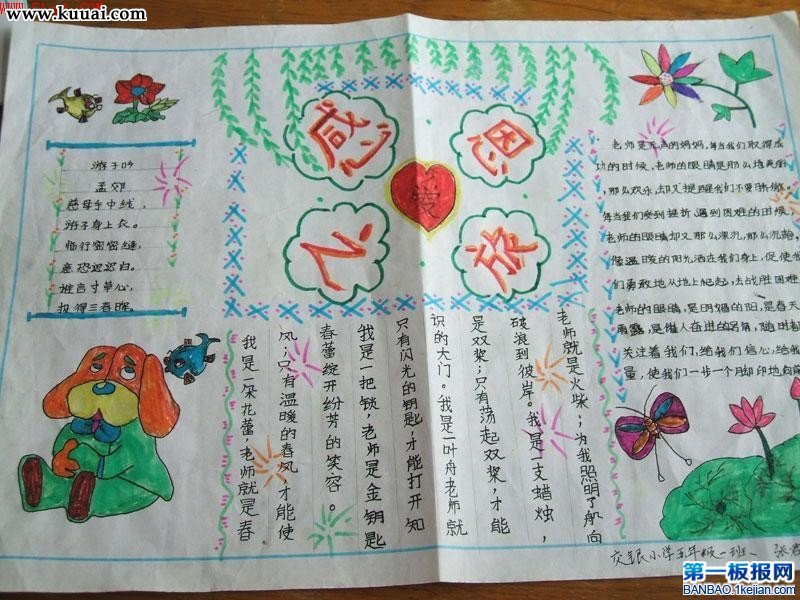 www.kuuai.com
感恩
愛
之欣
游子吟
孟郊
慈母手中线,
游子身上衣。
临行密密缝,
意恐迟迟归。
谁言寸草心,
报得三春晖。
老师是无声的妈妈,每当我们取得成
功的时候,老师的眼睛是那么地美丽
那么欢乐,去却又提醒我们不要骄傲。
每当我们受到挫折,遇到困难的时候,
老师的眼睛却又那么深沉,那么沉静,
像温暖的阳光洒在我们身上,促使
们勇敢地从地上爬起,去战胜困难
老师的眼睛,是明媚的阳,是春天
雨露,是催人奋进的号角,随时都
关注着我们,给我们信心,给我
量,使我们一步一个脚印地向前
我是一朵花蕾,老师就是春
风;只有温暖的春风,才能使
春蕾绽开纷芳的笑容。
我是一把锁,老师是金钥匙
只有闪光的钥匙,才能打开知
识的大门。我是一叶舟老师就
是双桨;只有荡起双桨,才能
破浪到彼岸。我是一支蜡烛,
老师就是火柴;为我照明了航向
交银小学五年级一班、张
第一板报网
BANBAO.1kejian.com